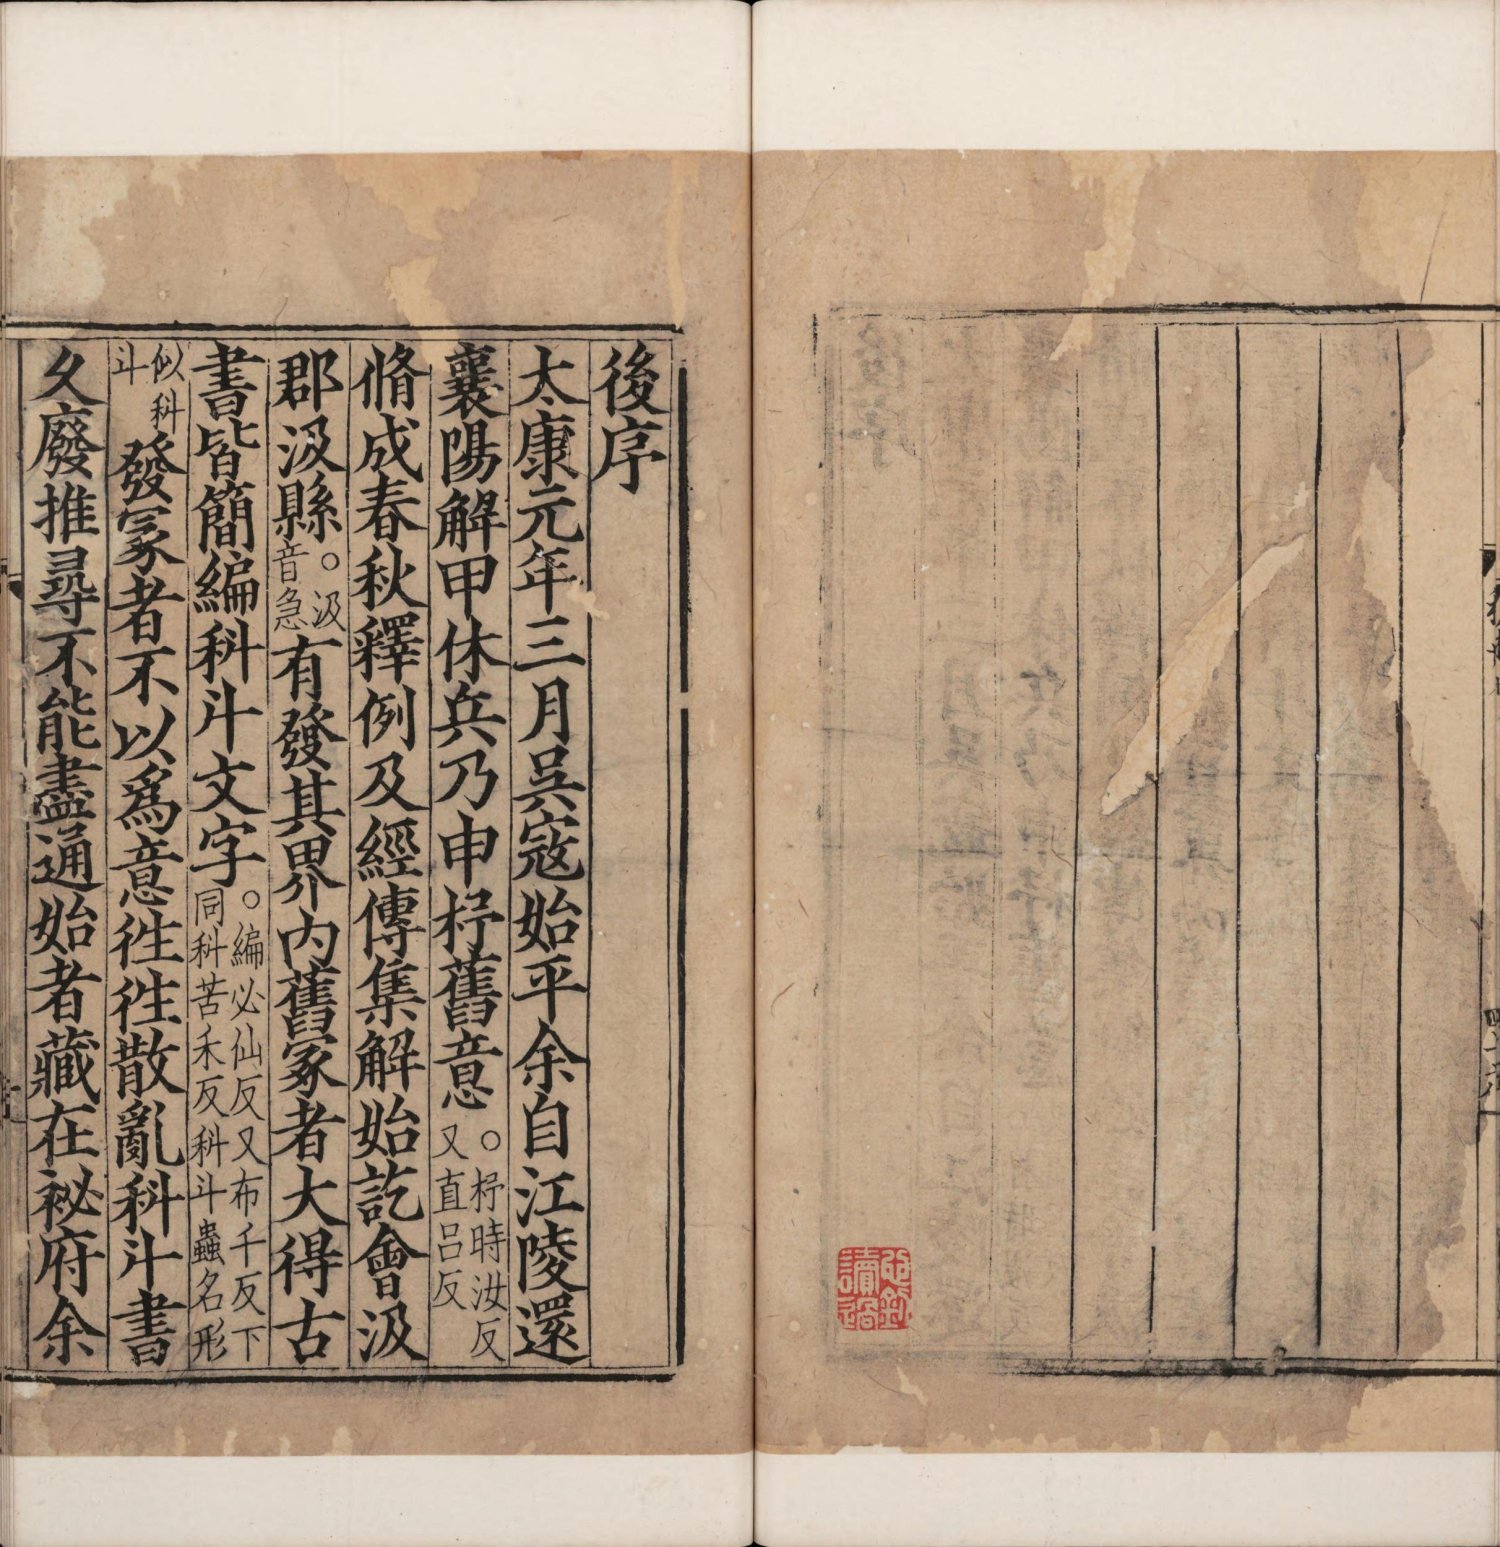 後序
太康元年三月吳寇始平余自江陵還
襄陽解甲休兵乃申杼舊意○杼時汝反又直呂反
脩成春秋釋例及經傳集解始訖會汲
郡汲縣○汲音急有發其界內舊冢者大得古
書皆簡編科斗文字○編必仙反又布千反下同科苦禾反科斗蟲名形
似科斗發冢者不以爲意徃徃散亂科斗書
久廢推尋不能盡通始者藏在祕府余